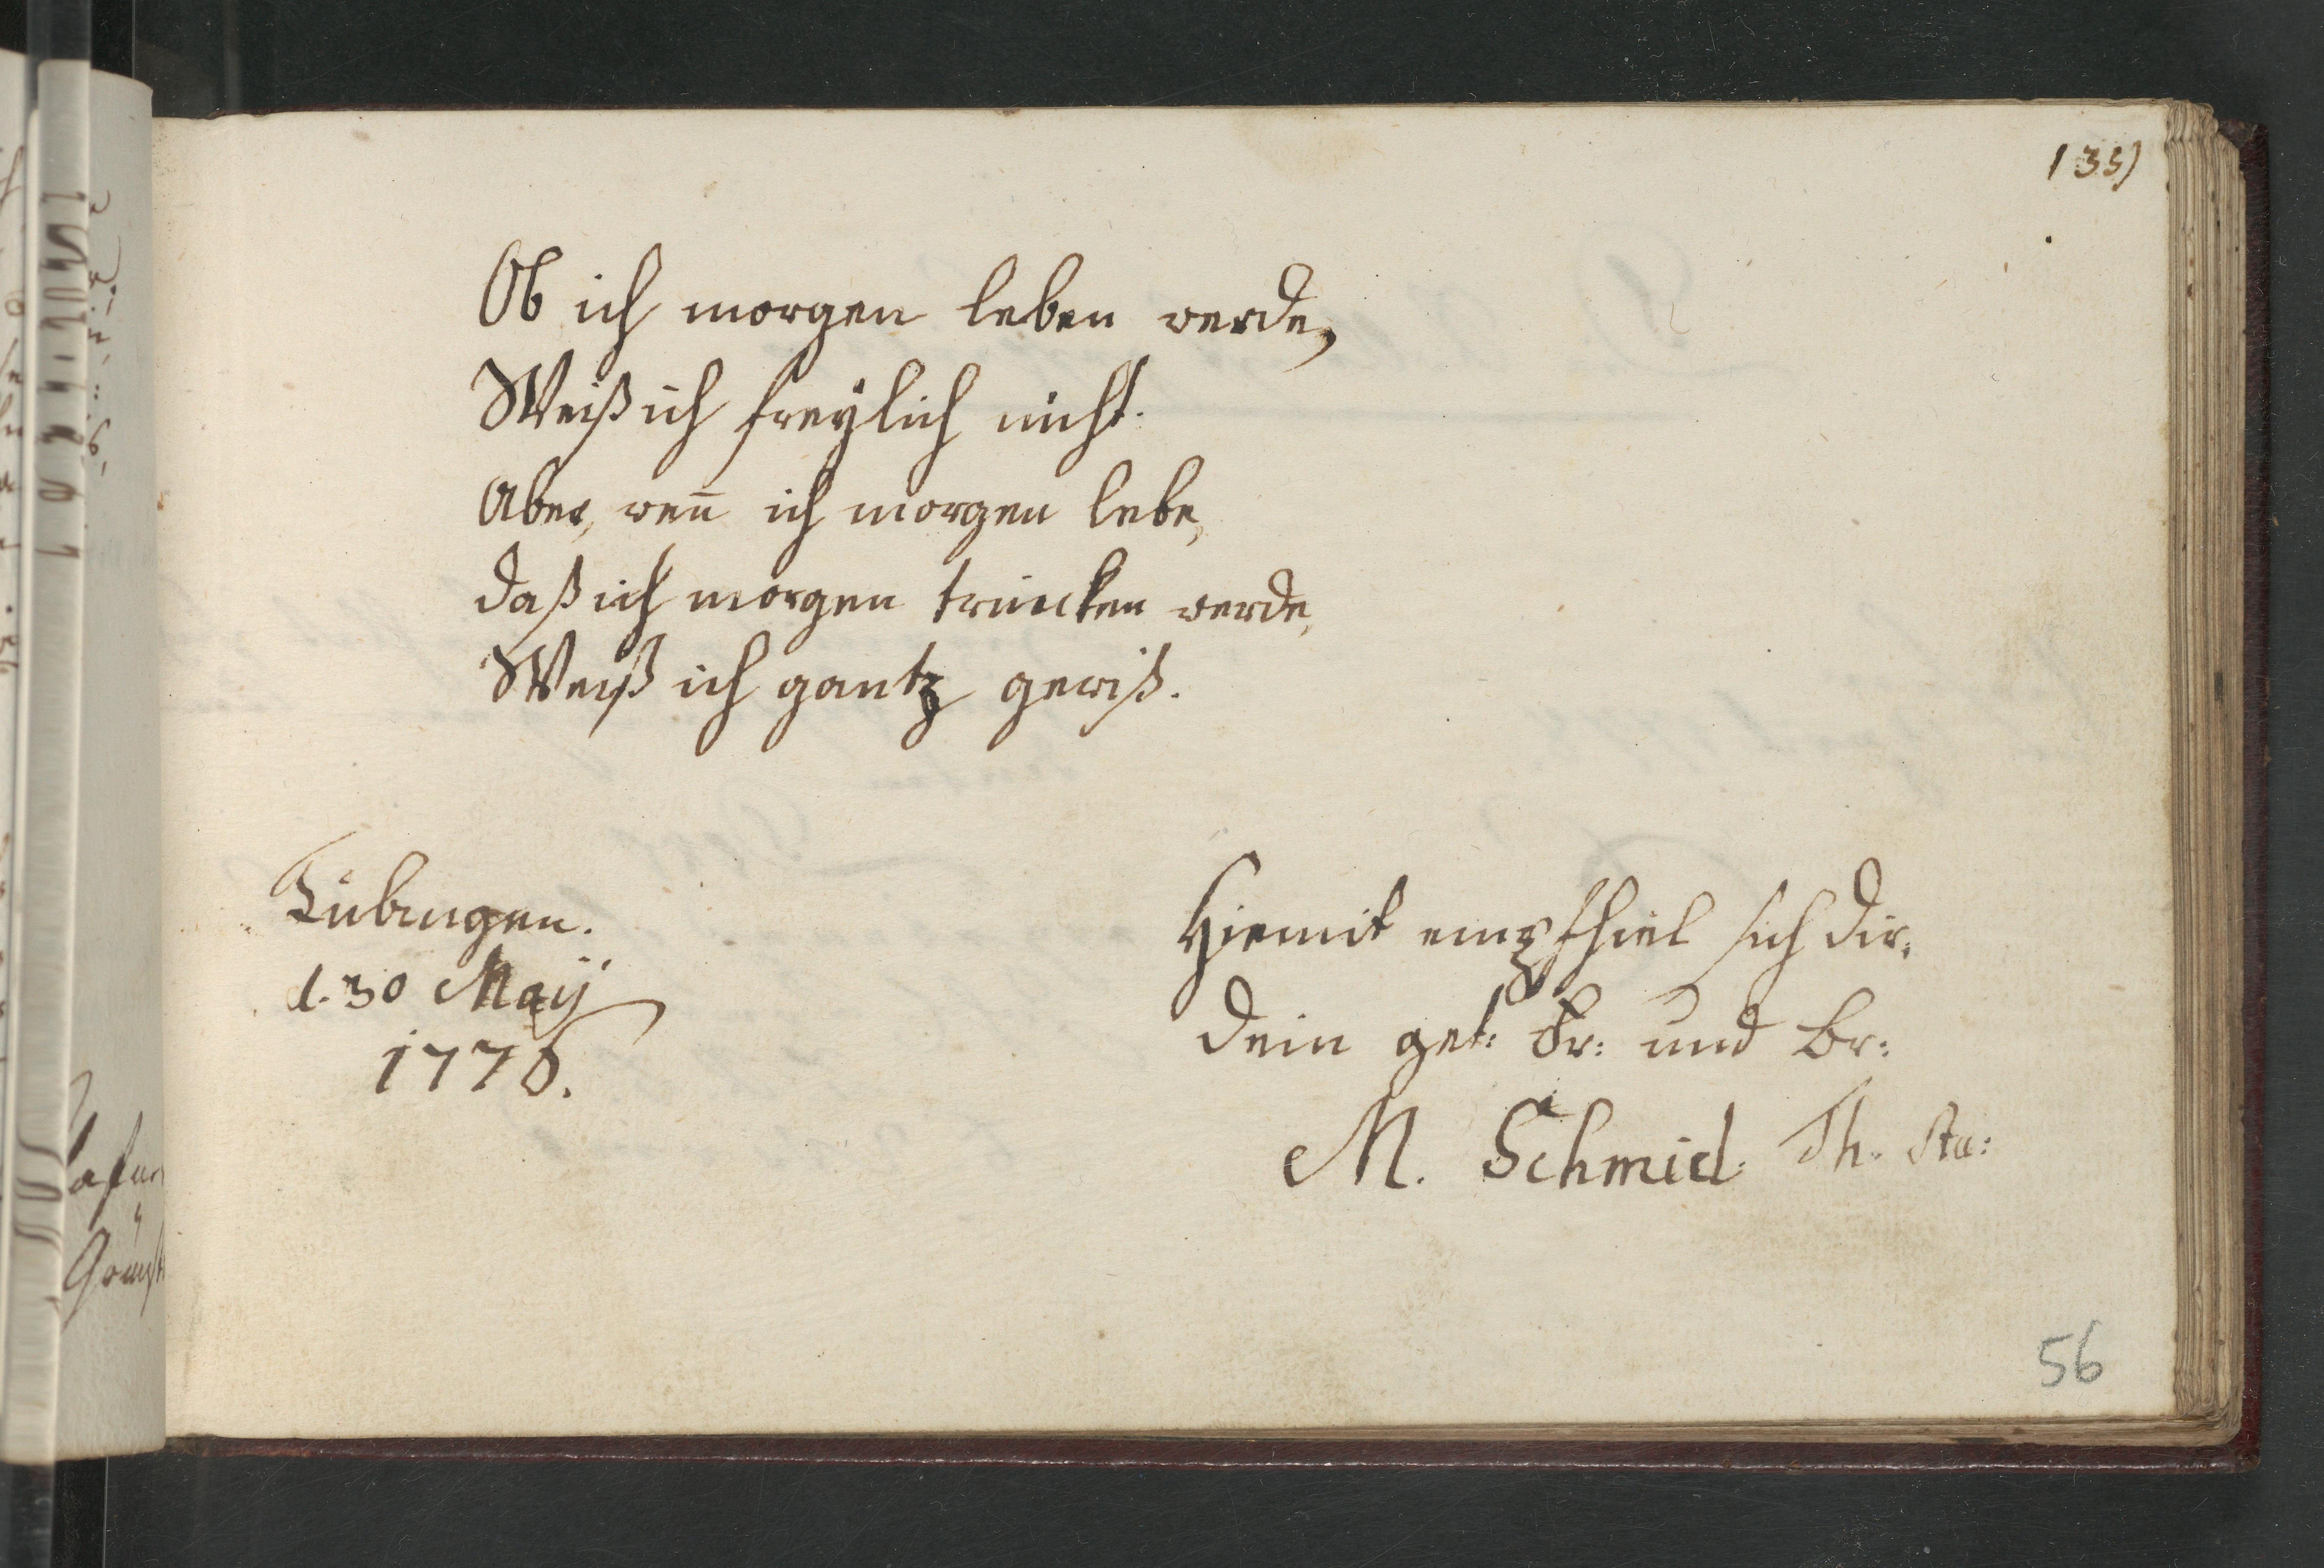 135)
Ob ich morgen leben werde,
Weiß ich freylich nicht.
Aber, wen̄ ich morgen lebe,
daß ich morgen trincken werde,
Weiß ich gantz gewiß.
Tübingen.
d. 30 May
1776.
Hiemit empfhiel sich dir,
dein get: Fr: und Br:
M. Schmid. Th. Stu:
56